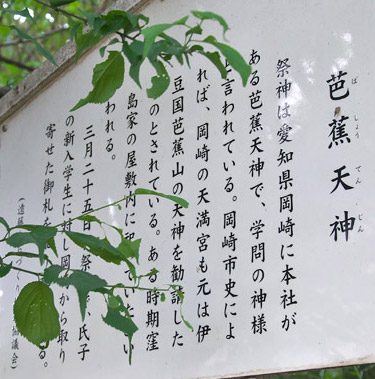 芭蕉天神
ば しょう てん じん
祭神は愛知県岡崎に本社が
ある芭蕉天神で、学問の神様
言われている。岡崎市史によ
れば、岡崎の天満宮も元は伊
豆国芭蕉山の天神を勧請した
のとされている。ある時期窪
島家の屋敷内に ていたとい
われる。
三月二十五日 祭 、氏子
の新入学生に対し岡 から取り
寄せた御札を る。